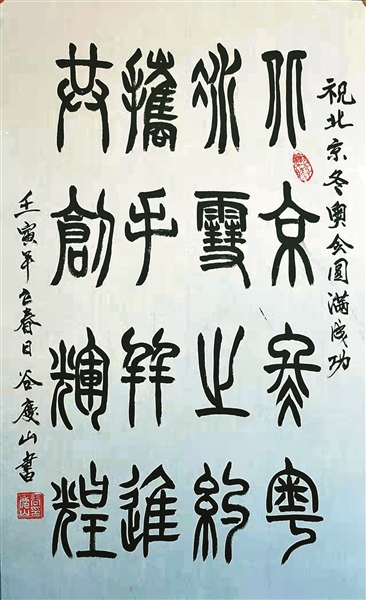 祝北京冬奧会圓满成功
北京冬奧
冰雪之約
攜手并進
共創輝煌
壬寅年立春日谷慶山書